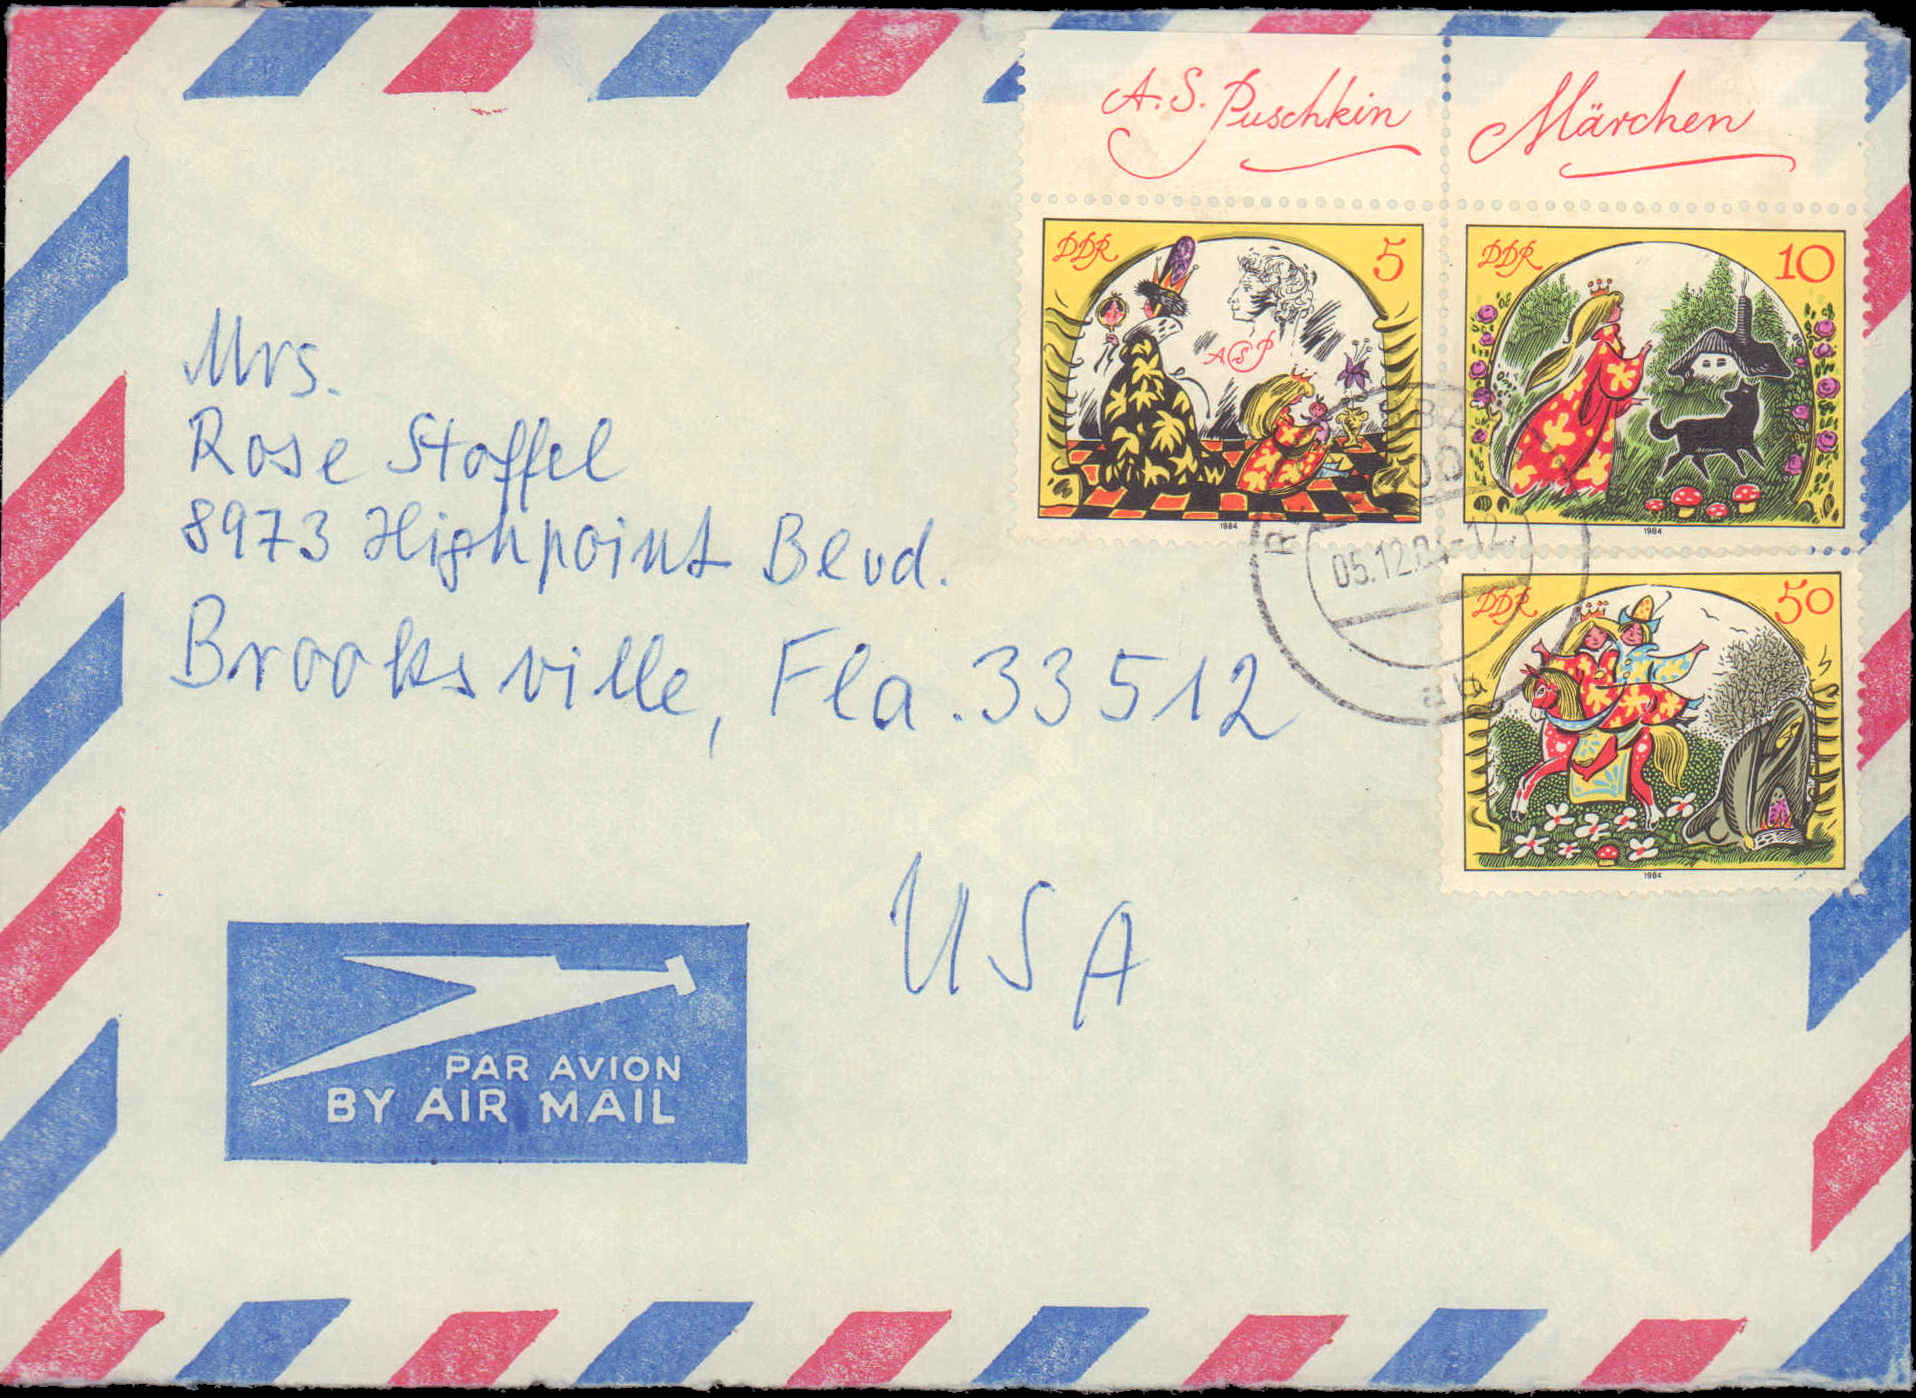 A. S. Puschkin
Märchen
DDR 5
A S P
1984
DDR 10
1984
DDR 50
1984
05.12.84-12
Mrs.
Rose Staffel
8973 Highpoint Blvd.
Brooksville, Fla. 33512
USA
PAR AVION
BY AIR MAIL